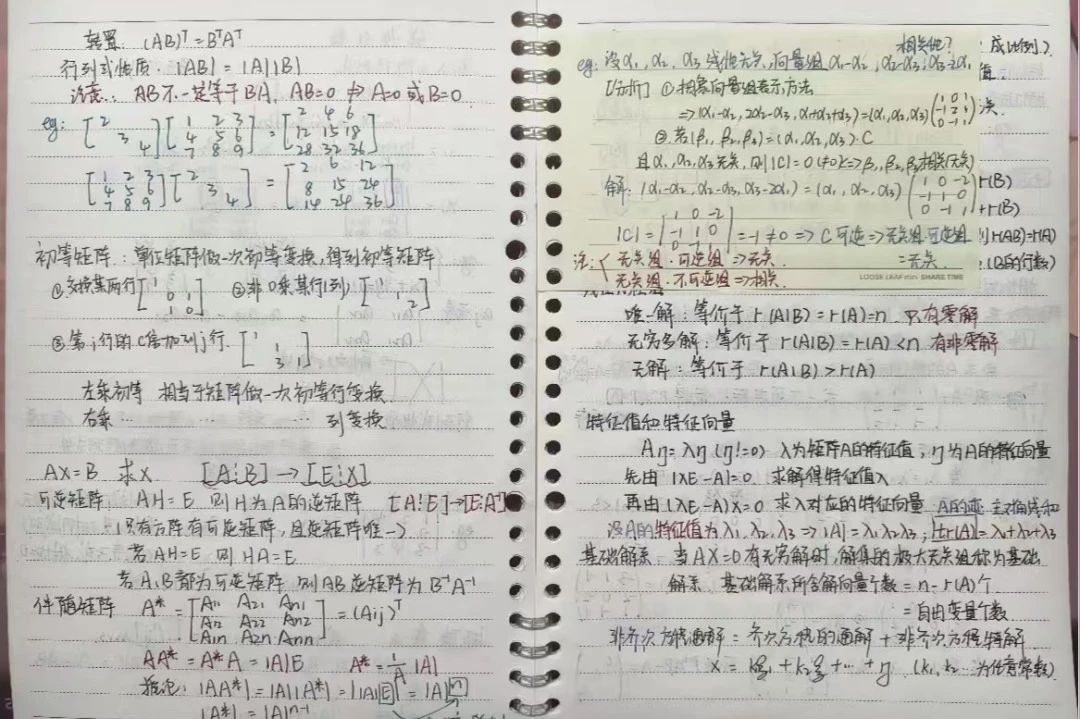 转置: (AB)ᵀ=BᵀAᵀ
行列式性质: |AB|=|A||B|
注意: AB不一定等于BA, AB=0 ⇏ A=0或B=0
eg: [2 3 4][1 2 3 4 5 6 7 8 9] = [2 4 6 12 15 18 28 32 36]
[1 2 3 4 5 6 7 8 9][2 3 4] = [2 6 12 8 15 24 14 24 36]
初等矩阵: 单位矩阵做一次初等变换,得到初等矩阵
①交换某两行[1 0 1 1 0] ②非0乘某行(列)[1 1 2]
③第i行的C倍加到j行.[1 1 3 1]
左乘初等 相当于矩阵做一次初等行变换
右乘 …… 列变换
AX=B 求X [A⋮B]→[E⋮X]
可逆矩阵 AH=E 则H为A的逆矩阵 [A⋮E]→[E⋮A⁻¹]
(只有方阵有可逆矩阵,且逆矩阵唯一)
若AH=E 则HA=E
若A,B都为可逆矩阵 则AB逆矩阵为B⁻¹A⁻¹
伴随矩阵 A*=[A₁₁ A₂₁ Aₙ₁ A₁₂ A₂₂ Aₙ₂ A₁ₙ A₂ₙ Aₙₙ]=(Aij)ᵀ
AA*=A*A=|A|E A*=1/A |A|
推论: |AA*|=|A||A*|=||A|E|=|A|ⁿ
|A*|=|A|ⁿ⁻¹
相关性?
eg: 设α₁,α₂,α₃线性无关,向量组α₁-α₂,α₂-α₃,α₃-2α₁
[分析] ①抽象向量组表示方法
⇒(α₁-α₂, 2α₂-α₃, α₁+α₂+α₃)=(α₁,α₂,α₃)(1 0 1 -1 2 1 0 -1 1)
②若(β₁,β₂,β₃)=(α₁,α₂,α₃)·C
且α₁,α₂,α₃无关,则|C|=0(≠0)⇒β₁,β₂,β₃相关(无关)
解: (α₁-α₂,α₂-α₃,α₃-2α₁)=(α₁,α₂,α₃)(1 0 -2 -1 1 0 0 -1 1)
|C|=|1 0 -2 -1 1 0 0 -1 1|=-1≠0⇒C可逆⇒无关组·可逆组
=无关
注: { 无关组·可逆组⇒无关.
无关组·不可逆组⇒相关.
LOOSE LEAF mini SHARE TIME
成比例)
值.
法.
r(B)
+r(B)
则r(AB)=r(A)
(B的行数)
唯一解: 等价于 r(A|B)=r(A)=n 只有零解
无穷多解: 等价于 r(A|B)=r(A)<n 有非零解
无解: 等价于 r(A|B)>r(A)
特征值和特征向量
Aη=λη (η!=0) λ为矩阵A的特征值, η为A的特征向量
先由|λE-A|=0 求解得特征值λ
再由(λE-A)X=0 求λ对应的特征向量 A的迹:主对角线和
设A的特征值为λ₁,λ₂,λ₃⇒|A|=λ₁λ₂λ₃, tr(A)=λ₁+λ₂+λ₃
基础解系: 当AX=0有无穷解时,解集的极大无关组称为基础
解系 基础解系所含解向量个数=n-r(A)个
=自由变量个数
非齐次方程通解=齐次方程的通解+非齐次方程特解
x=k₁ξ₁+k₂ξ₂+…+η (k₁,k₂ 为任意常数)